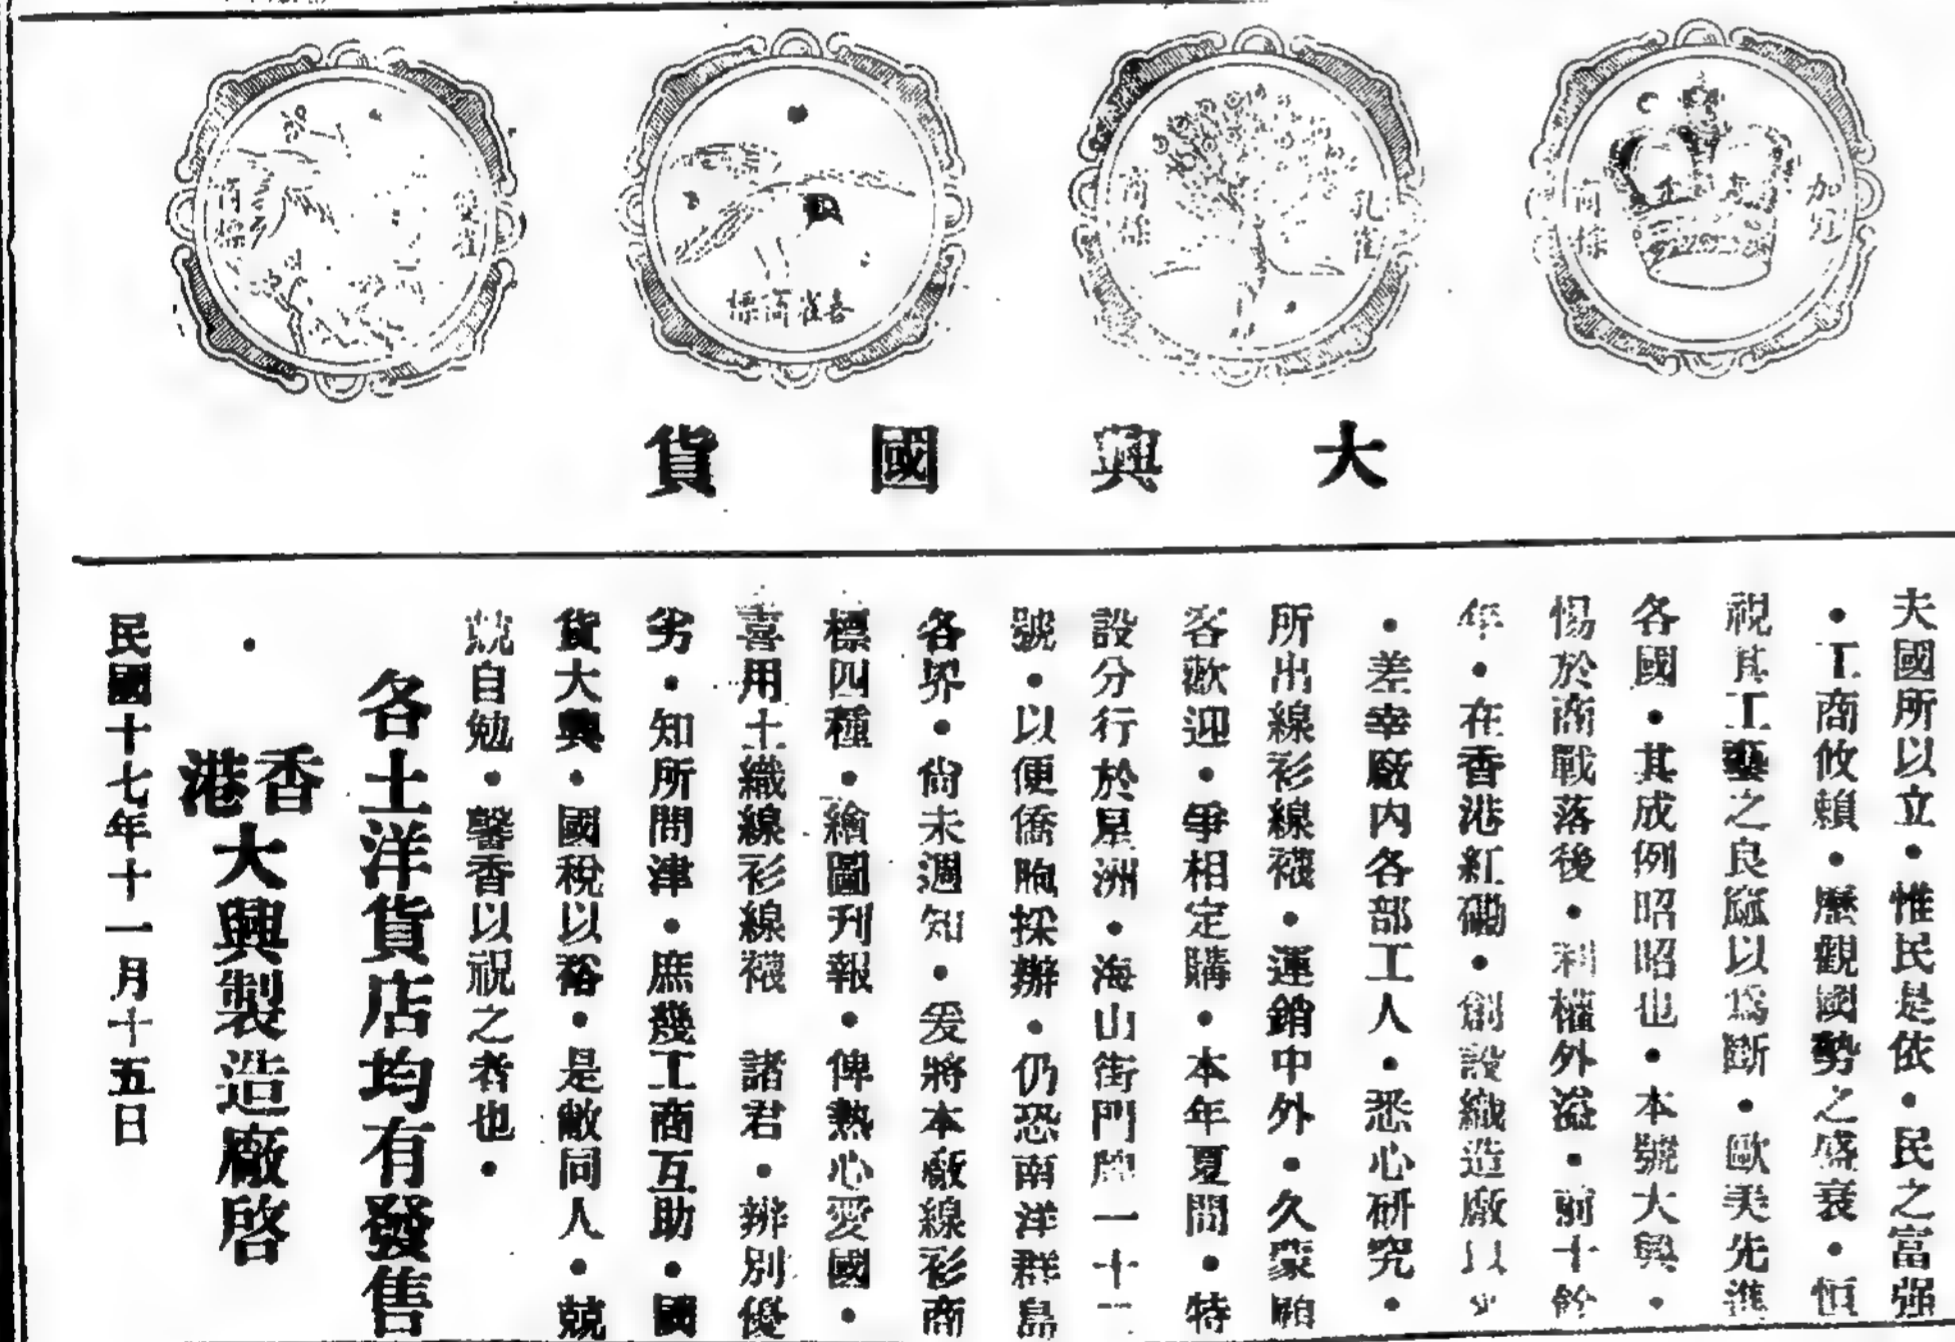 加冠
商標
孔雀
商標
喜雀商標
雙雀
商標
大興國貨
夫國所以立·惟民是依·民之富强
·工商攸賴·歷觀國勢之盛衰·恒
視其工藝之良窳以爲斷·歐美先進
各國·其成例昭昭也·本號大興·
惕於商戰落後·利權外溢·前十餘
年·在香港紅磡·創設織造廠以
·差幸廠内各部工人·悉心研究·
所出線衫線襪·運銷中外·久蒙顧
客歡迎·爭相定購·本年夏間·特
設分行於星洲·海山街門牌一十二
號·以便僑胞採辦·仍恐南洋群島
各界·尙未週知·爰將本廠線衫商
標四種·繪圖刊報·俾熱心愛國·
喜用土織線衫線襪 諸君·辨別優
劣·知所問津·庶幾工商互助·國
貨大興·國稅以裕·是敝同人·兢
兢自勉·馨香以祝之者也·
各土洋貨店均有發售
香港大興製造廠啓
民國十七年十一月十五日